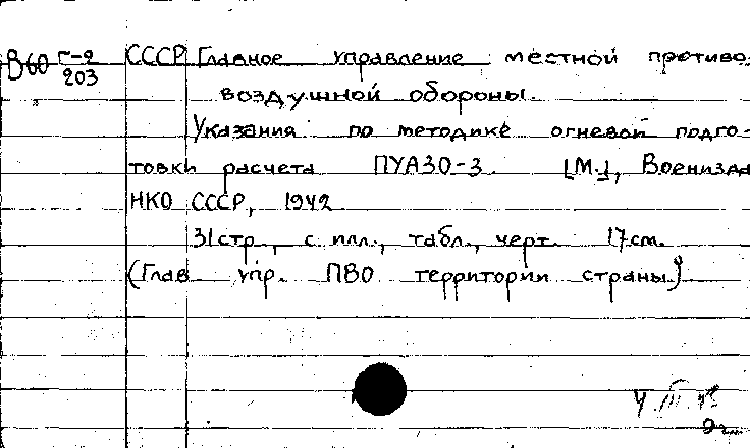 В60 Г-2/203 СССР Главное управление местной противо-
воздушной обороны.
Указания по методике огневой подго-
товки расчета ПУАЗО-3. [М.], Воениздат
НКО СССР, 1942
31 стр., с илл., табл., черт. 17 см.
(Глав. упр. ПВО территории страны)